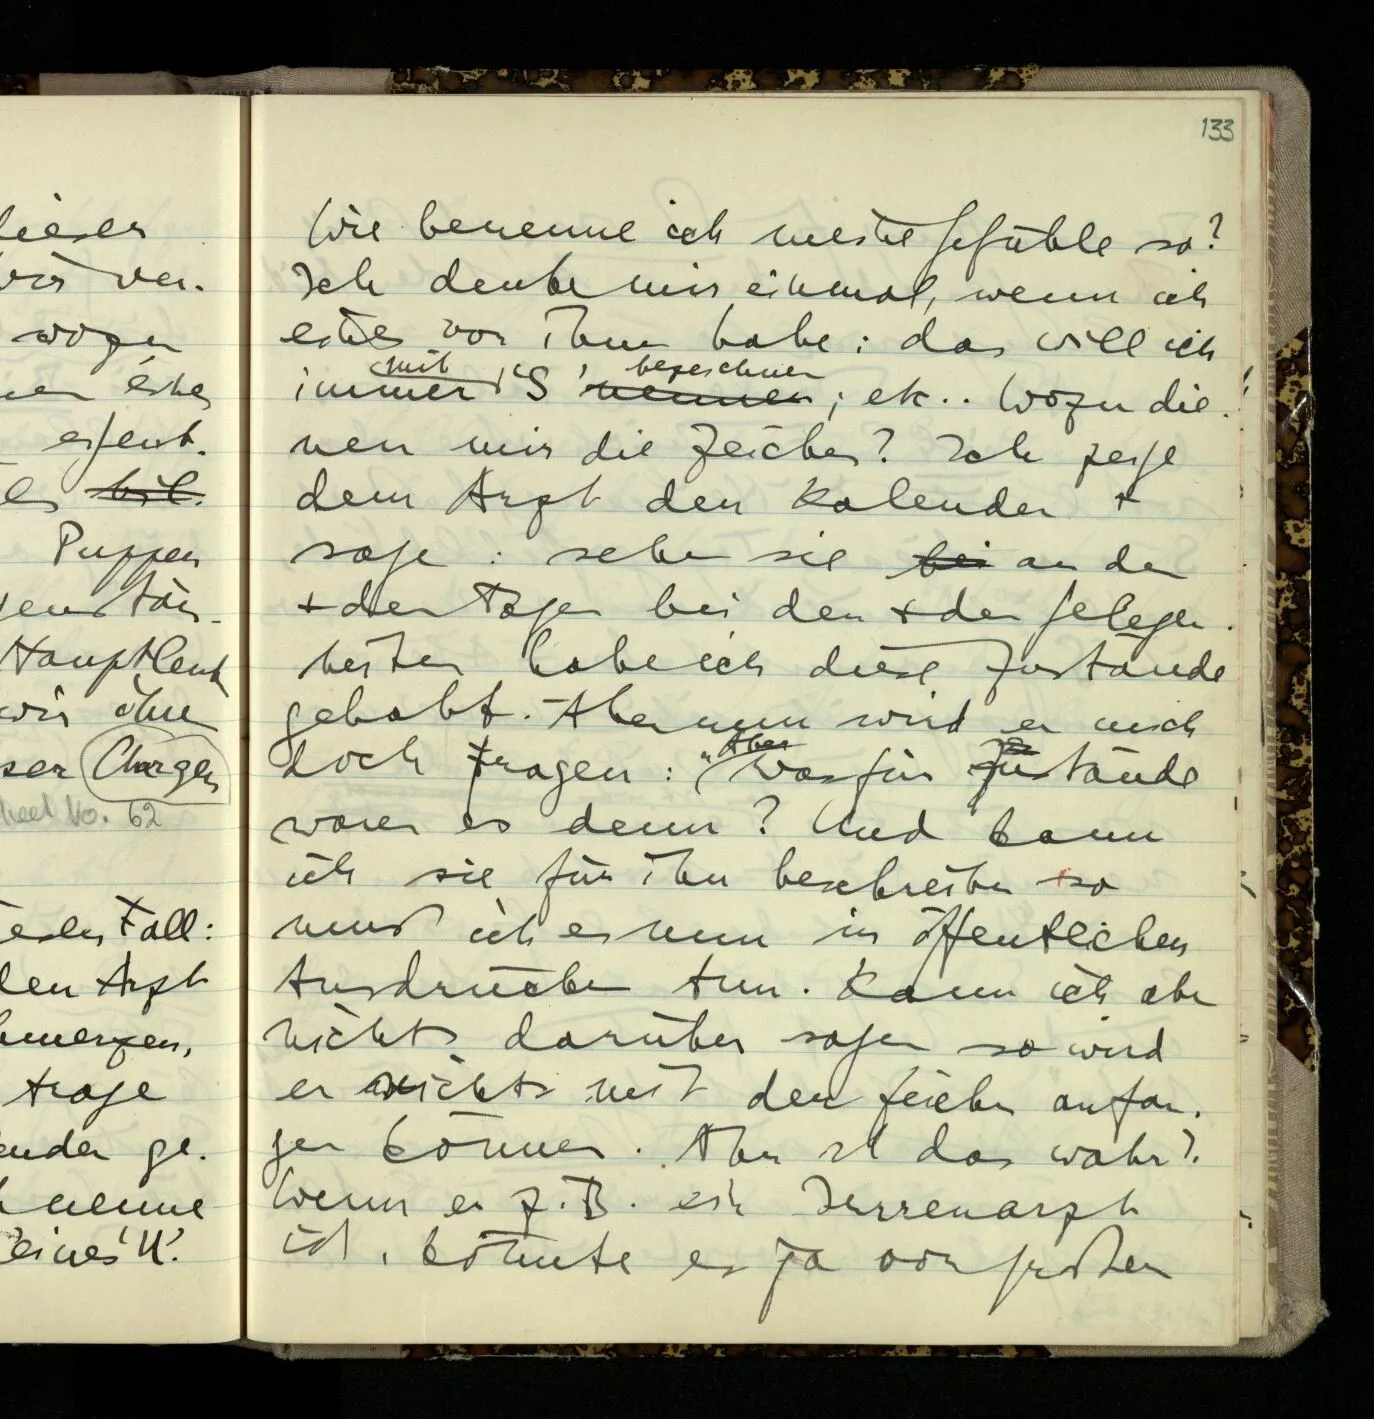 dieser
wir ver-
wozu
eines
Puppen
Hauptleut
wir ihn
Charger
No. 62
Fall:
den Arzt
trage
ge-
nenne
eines 'U'.
133
Wie benenne ich meine Gefühle so?
Ich denke mir einmal, wenn ich
eines vor ihm habe: das will ich
mit bezeichnen
immer 'S' nennen; etc.. Wozu die-
nen mir die Zeichen? Ich zeige
dem Arzt den Kalender +
sage: sehen sie bei an den
+ den Tagen bei den + den Gelegen-
heiten habe ich diese Zustände
gehabt. Aber nun wird er mich
Aber
doch fragen: "was für Zustände
waren es denn? Und kann
ich sie für ihn beschreiben so
muß ich es nun in öffentlichen
Ausdrücken tun. Kann ich aber
nichts darüber sagen so wird
er nichts mit den Zeichen anfan-
gen können. Aber ist das wahr?
Wenn er z.B. ein Irrenarzt
ist, könnte er ja von großen